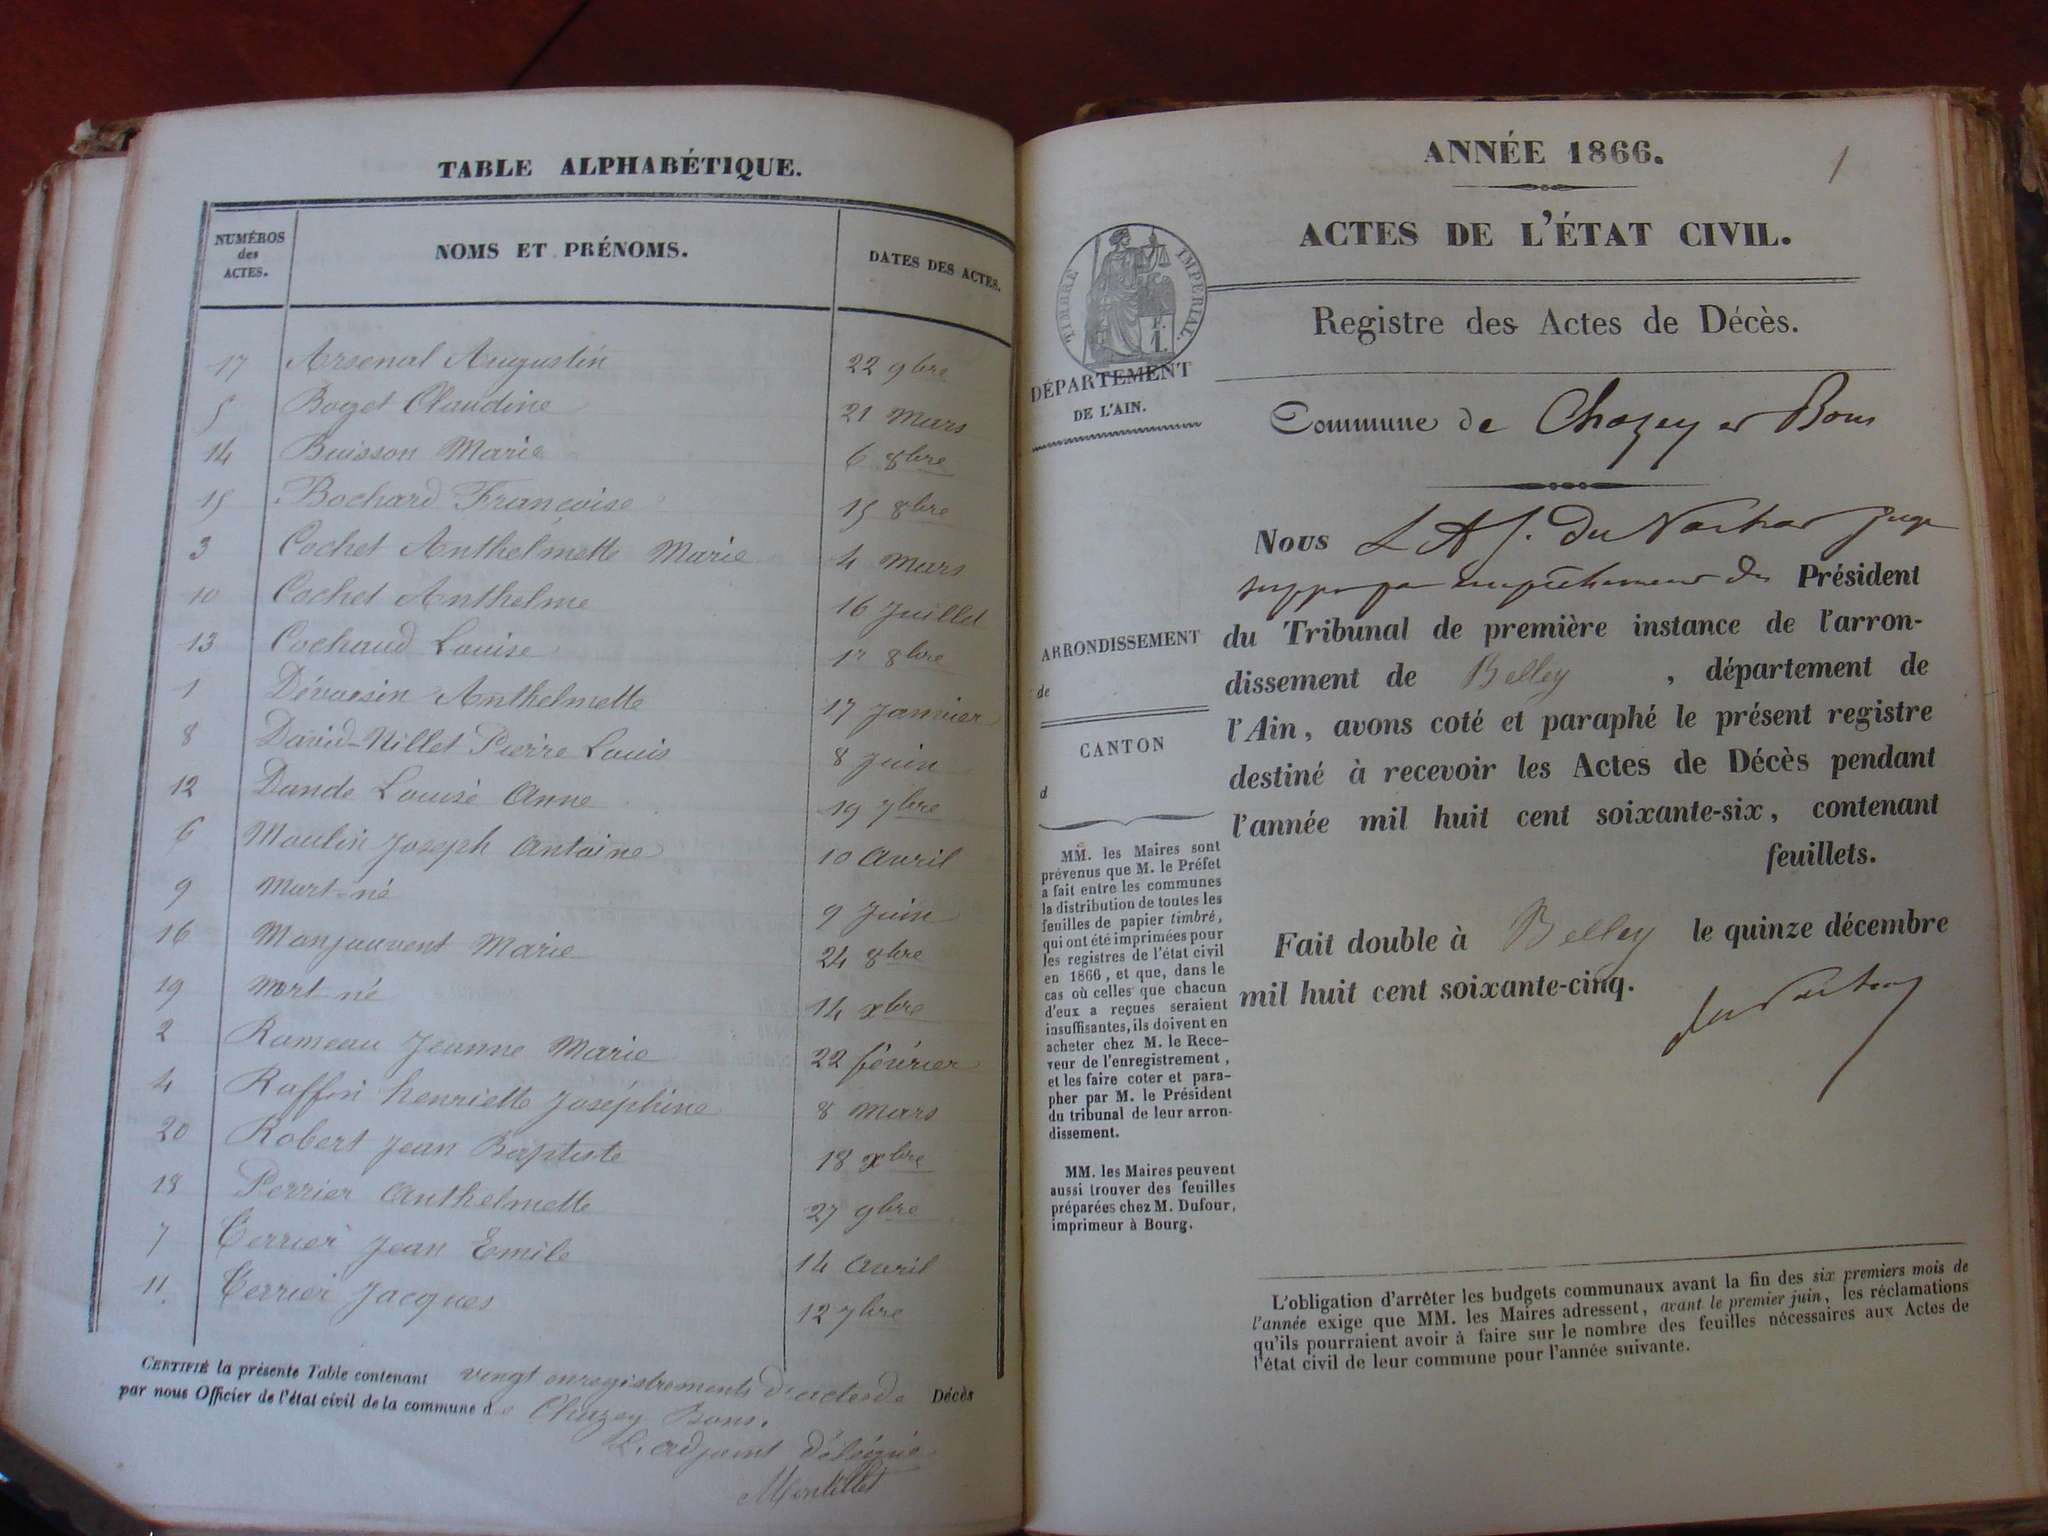 TABLE ALPHABÉTIQUE.
NUMÉROS des ACTES. NOMS ET PRÉNOMS. DATES DES ACTES.
17 Arsenal Augustin 22 9bre
5 Bozet Claudine 21 Mars
14 Buisson Marie 6 8bre
15 Bochard Françoise 15 8bre
3 Cochet Anthelmette Marie 4 Mars
10 Cochet Anthelme 16 Juillet
13 Cochaud Louise 1r 8bre
1 Anthelmette 17 Janvier
8 David-Nillet Pierre Louis 8 Juin
12 Dande Louise Anne 19 7bre
6 Moulin Joseph Antoine 10 Avril
9 Mort-né 9 Juin
16 Monjauvent Marie 24 8bre
19 Mort-né 14 xbre
2 Rameau Jeanne Marie 22 février
4 Raffin henriette Joséphine 8 Mars
20 Robert Jean Baptiste 18 xbre
18 Perrier Anthelmette 27 9bre
7 Terrier Jean Emile 14 Avril
11 Terrier Jacques 12 7bre
CERTIFIÉ la présente Table contenant vingt enregistrements d'actes de Décès
par nous Officier de l'état civil de la commune de Chazey Bons.
L'adjoint délégué
Montillet
ANNÉE 1866. 1
ACTES DE L'ÉTAT CIVIL.
TIMBRE IMPÉRIAL.
Registre des Actes de Décès.
DÉPARTEMENT
DE L'AIN.
Commune de Chazey et Bons
Nous L A J. du Nachar Juge
empêchement du Président
du Tribunal de première instance de l'arron-
dissement de Belley , département de
l'Ain, avons coté et paraphé le présent registre
destiné à recevoir les Actes de Décès pendant
l'année mil huit cent soixante-six, contenant
feuillets.
Fait double à Belley le quinze décembre
mil huit cent soixante-cinq.
ARRONDISSEMENT
de
CANTON
d
MM. les Maires sont
prévenus que M. le Préfet
a fait entre les communes
la distribution de toutes les
feuilles de papier timbré,
qui ont été imprimées pour
les registres de l'état civil
en 1866, et que, dans le
cas où celles que chacun
d'eux a reçues seraient
insuffisantes, ils doivent en
acheter chez M. le Rece-
veur de l'enregistrement,
et les faire coter et para-
pher par M. le Président
du tribunal de leur arron-
dissement.
MM. les Maires peuvent
aussi trouver des feuilles
préparées chez M. Dufour,
imprimeur à Bourg.
L'obligation d'arrêter les budgets communaux avant la fin des six premiers mois de
l'année exige que MM. les Maires adressent, avant le premier juin, les réclamations
qu'ils pourraient avoir à faire sur le nombre des feuilles nécessaires aux Actes de
l'état civil de leur commune pour l'année suivante.